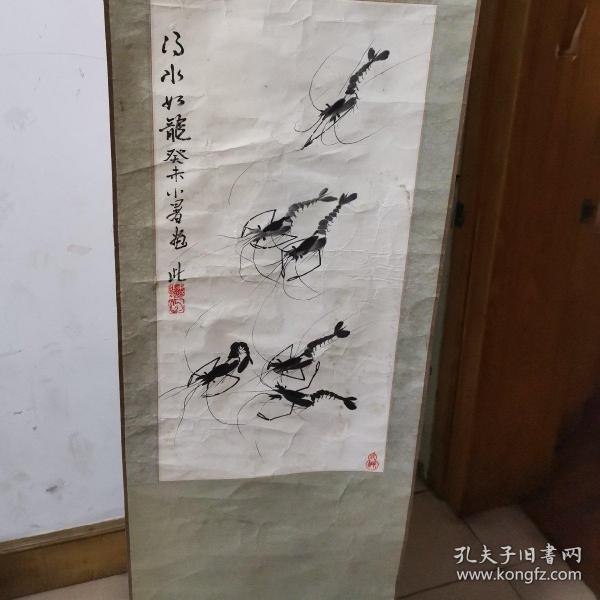 得水如龍癸未小暑抱此
孔夫子旧書网
www.kongfz.com